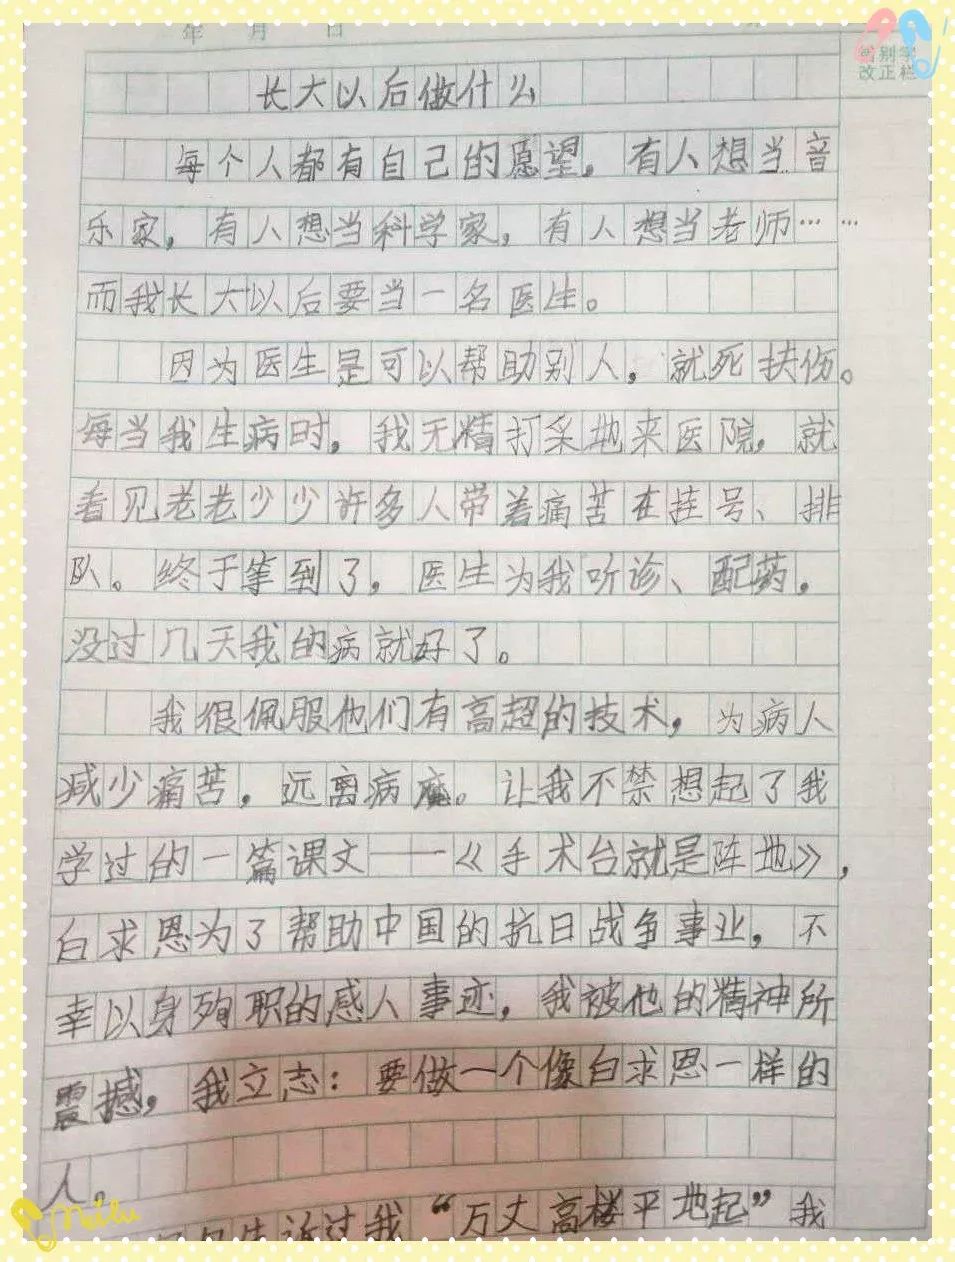 年 月 日
错别字
改正栏
长大以后做什么
每个人都有自己的愿望。有人想当音
乐家,有人想当科学家,有人想当老师……
而我长大以后要当一名医生。
因为医生是可以帮助别人,就死扶伤。
每当我生病时,我无精打采地来医院,就
看见老老少少许多人带着痛苦在挂号、排
队。终于等到了,医生为我听诊、配药,
没过几天我的病就好了。
我很佩服他们有高超的技术,为病人
减少痛苦,远离病魔。让我不禁想起了我
学过的一篇课文——《手术台就是阵地》,
白求恩为了帮助中国的抗日战争事业,不
幸以身殉职的感人事迹,我被他的精神所
震撼,我立志:要做一个像白求恩一样的
人。
告诉过我“万丈高楼平地起”我
Meilu